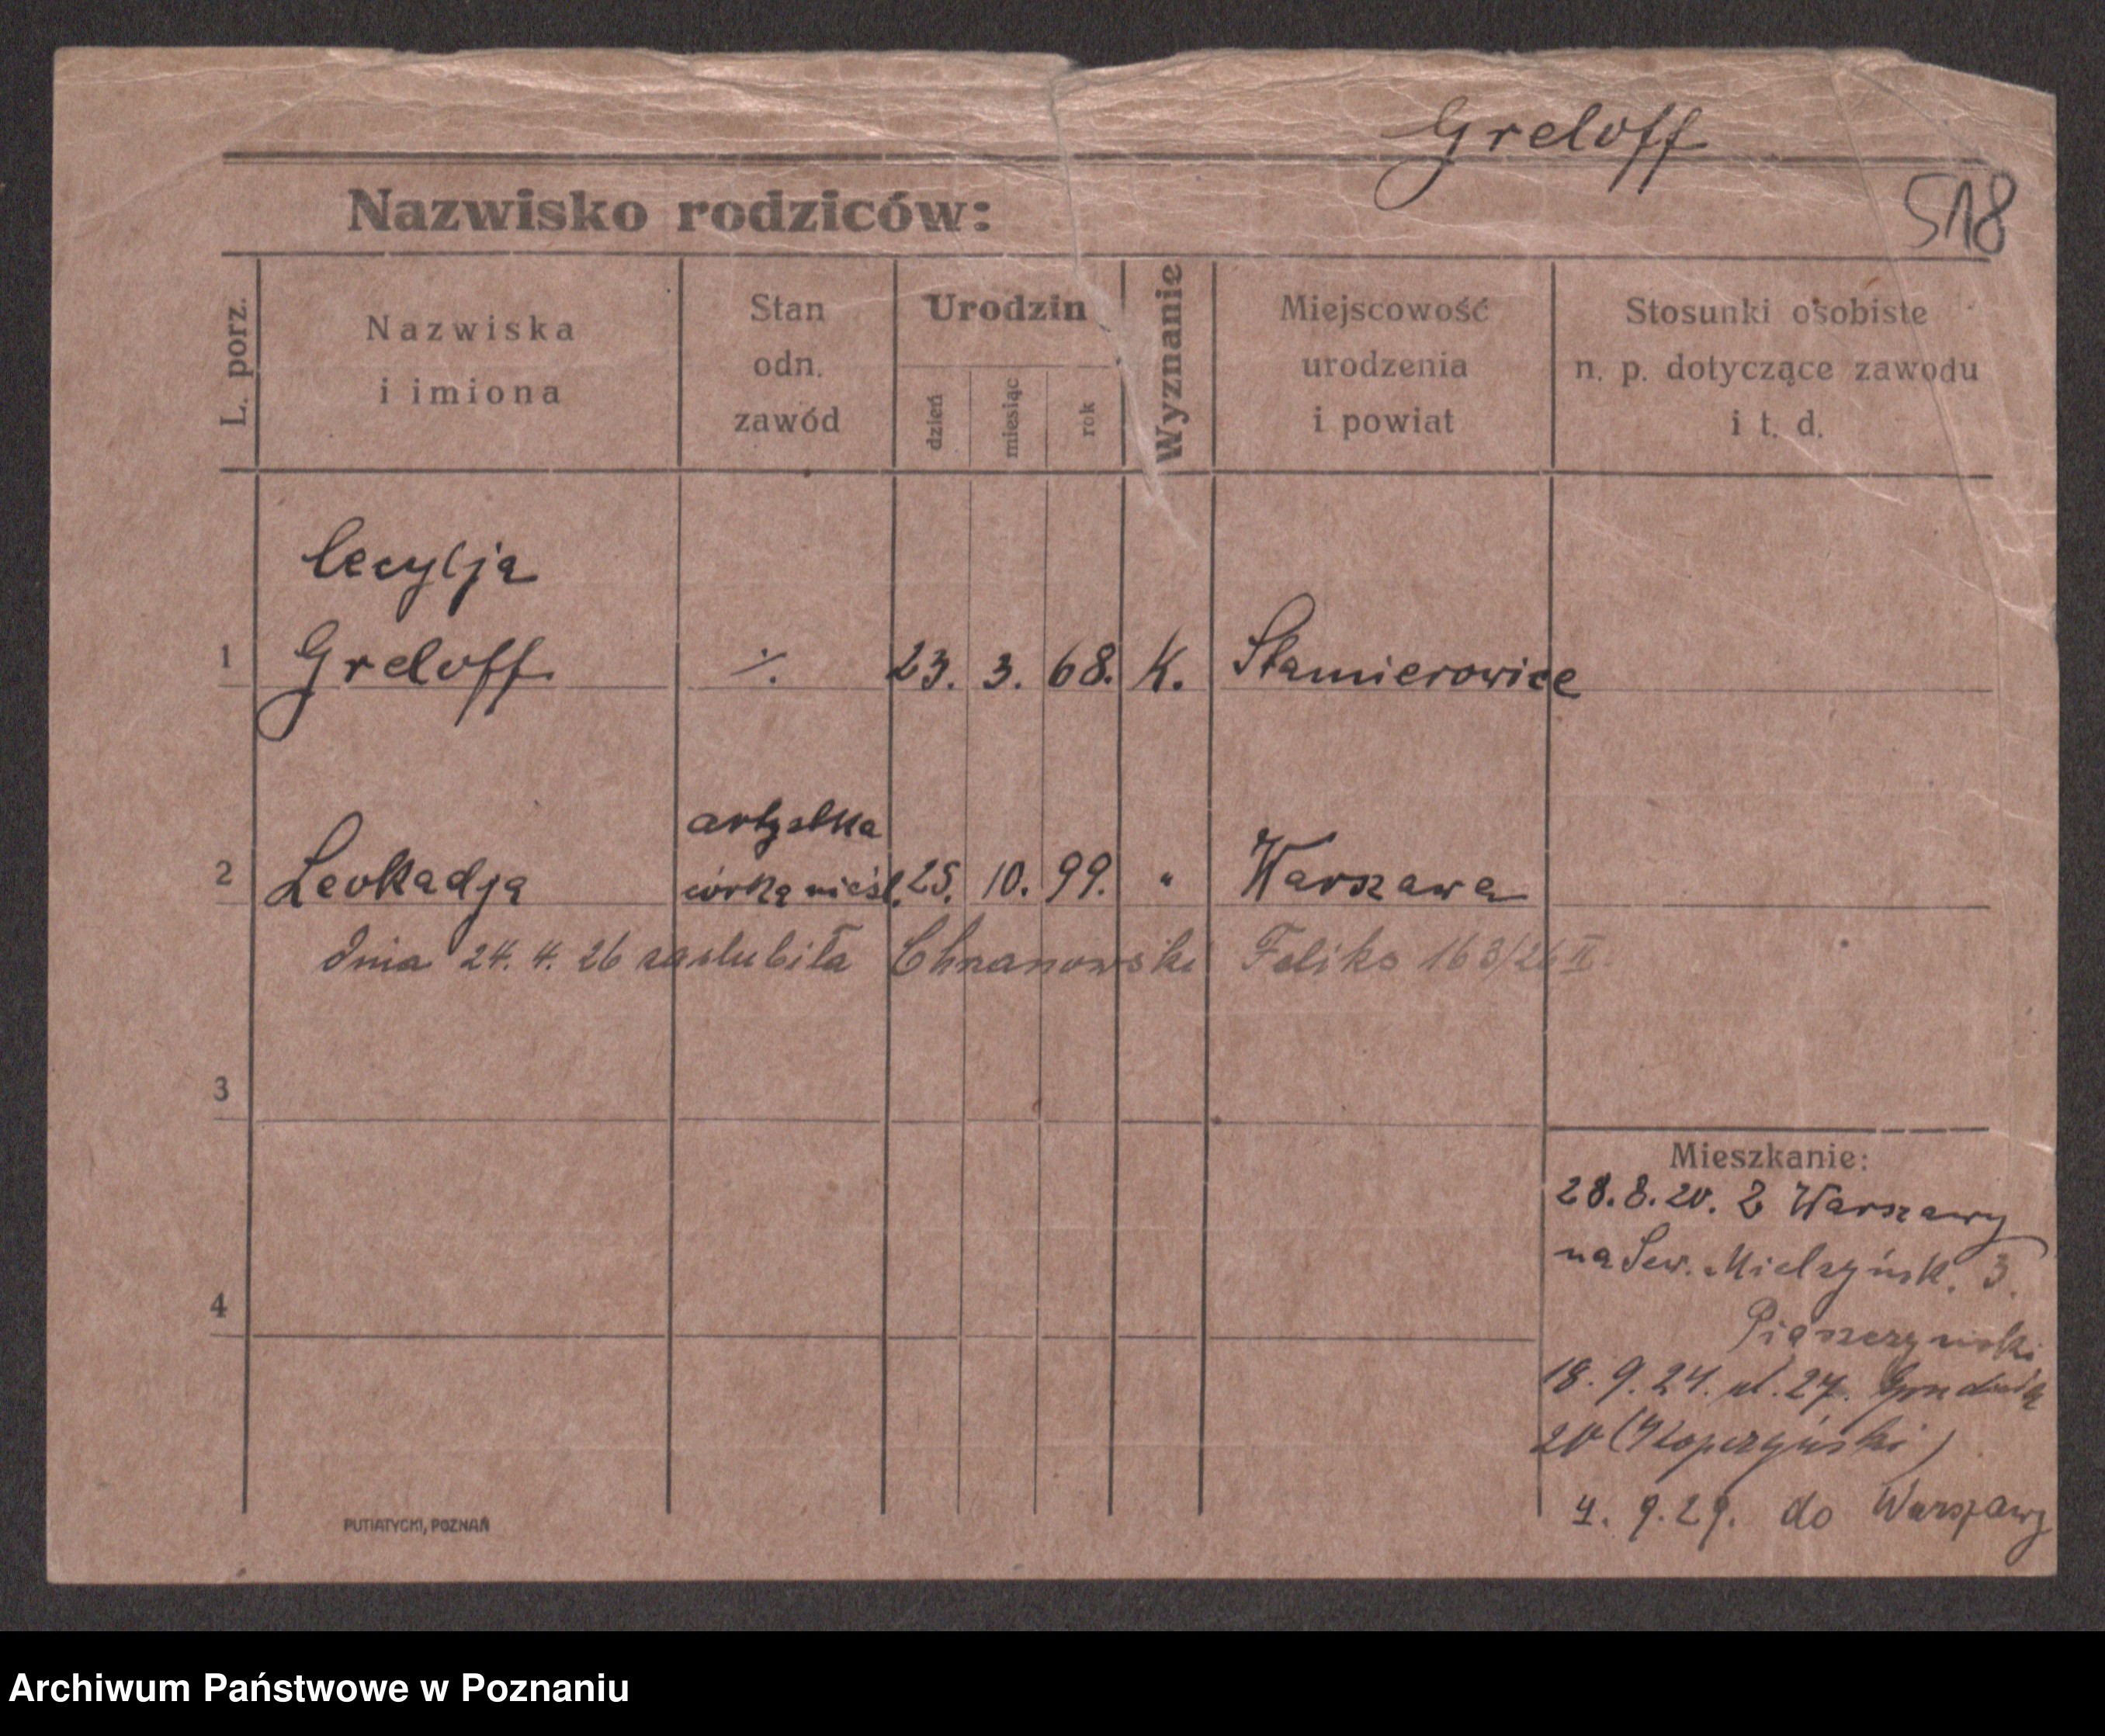 Greloff
518
Nazwisko rodziców:
L. porz.
Nazwiska
i imiona
Stan
odn.
zawód
Urodzin
dzień
miesiąc
rok
Wyznanie
Miejscowość
urodzenia
i powiat
Stosunki osobiste
n. p. dotyczące zawodu
i t. d.
Cecylja
1 Greloff ·/. 23. 3. 68. K. Stamierowice
artystka
2 Leokadja córka nieśl. 25. 10. 99. " Warszawa
dnia 24. 4. 26 zaślubiła Chrzanowski Feliks 163/26 II
3
Mieszkanie:
28.8.20. Z Warszawy
na Sew. Mielżyńsk. 3.
4
Piaszczyński
18. 9. 24. ul. 27. Grudnia
20 (Kopczyński)
4. 9. 29. do Warszawy
PUTIATYCKI, POZNAŃ
Archiwum Państwowe w Poznaniu